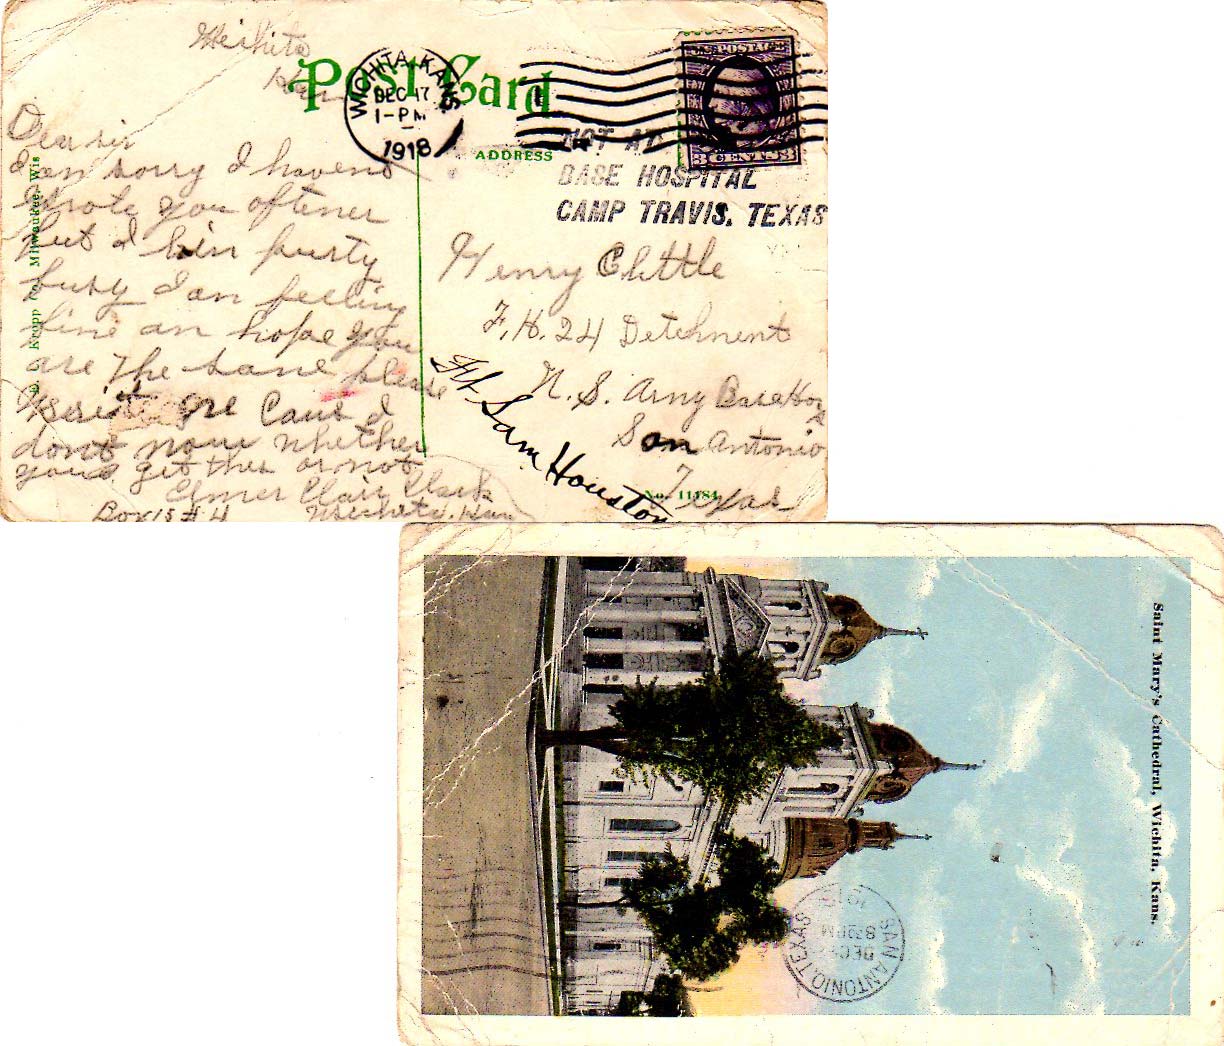 Wichita
Kan
Post Card
WICHITA, KANS.
DEC 17
1-PM
1918
POSTAGE
3 CENTS 3
ADDRESS
NOT AT
BASE HOSPITAL
CAMP TRAVIS, TEXAS
Dear sir
I am sorry I havend
Wrote you oftener
but I bin purty
busy I am feeling
fine an hope you
are the same please
Write me Caus I
dont now whether
youd get this or not
Elmer Clair Clark
Box 15 #4 Wichita, Kan
E. C. Kropp Co. Milwaukee, Wis
Henry Clittle
F. H. 24 Detchment
N. S. Army Base Hos
San Antonio
Texas
Ft Sam Houston
No. 11184
Saint Mary's Cathedral, Wichita, Kans.
SAN ANTONIO, TEXAS
DEC
8 PM
1918